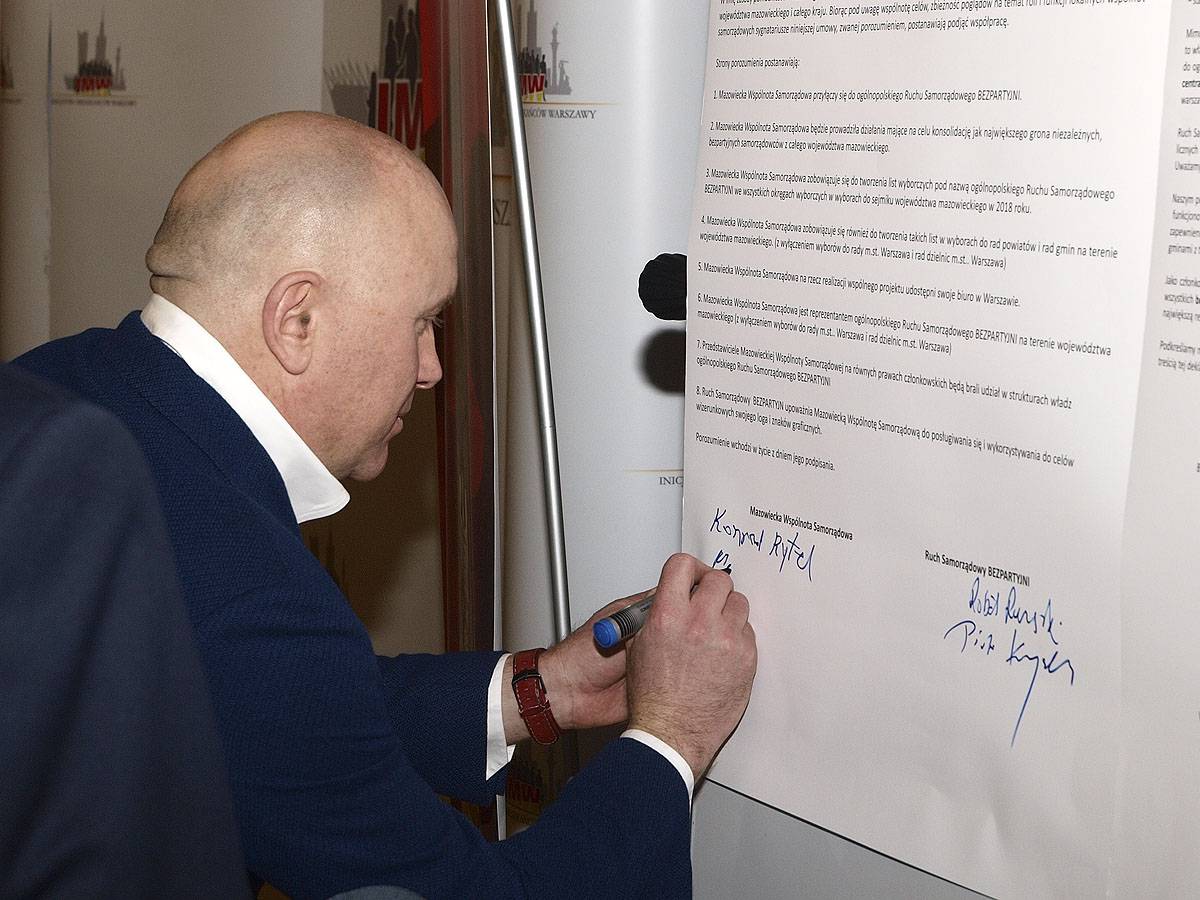 województwa mazowieckiego i całego kraju. Biorąc pod uwagę wspólnotę celów, zbieżność poglądów na temat roli i funkcji lokalnych wspólnot
samorządowych sygnatariusze niniejszej umowy, zwanej porozumieniem, postanawiają podjąć współpracę.
Strony porozumienia postanawiają:
1. Mazowiecka Wspólnota Samorządowa przyłączy się do ogólnopolskiego Ruchu Samorządowego BEZPARTYJNI.
2. Mazowiecka Wspólnota Samorządowa będzie prowadziła działania mające na celu konsolidację jak największego grona niezależnych,
bezpartyjnych samorządowców z całego województwa mazowieckiego.
3. Mazowiecka Wspólnota Samorządowa zobowiązuje się do tworzenia list wyborczych pod nazwą ogólnopolskiego Ruchu Samorządowego
BEZPARTYJNI we wszystkich okręgach wyborczych w wyborach do sejmiku województwa mazowieckiego w 2018 roku.
4. Mazowiecka Wspólnota Samorządowa zobowiązuje się również do tworzenia takich list w wyborach do rad powiatów i rad gmin na terenie
województwa mazowieckiego. (z wyłączeniem wyborów do rady m.st. Warszawa i rad dzielnic m.st.. Warszawa)
5. Mazowiecka Wspólnota Samorządowa na rzecz realizacji wspólnego projektu udostępni swoje biuro w Warszawie.
6. Mazowiecka Wspólnota Samorządowa jest reprezentantem ogólnopolskiego Ruchu Samorządowego BEZPARTYJNI na terenie województwa
mazowieckiego (z wyłączeniem wyborów do rady m.st.. Warszawa i rad dzielnic m.st. Warszawa)
7. Przedstawiciele Mazowieckiej Wspólnoty Samorządowej na równych prawach członkowskich będą brali udział w strukturach władz
ogólnopolskiego Ruchu Samorządowego BEZPARTYJNI
8. Ruch Samorządowy BEZPARTYJN upoważnia Mazowiecką Wspólnotę Samorządową do posługiwania się i wykorzystywania do celów
wizerunkowych swojego loga i znaków graficznych.
Porozumienie wchodzi w życie z dniem jego podpisania.
Mazowiecka Wspólnota Samorządowa
Konrad Rytel
Ruch Samorządowy BEZPARTYJNI
Piotr
IMW
WARSZAWY